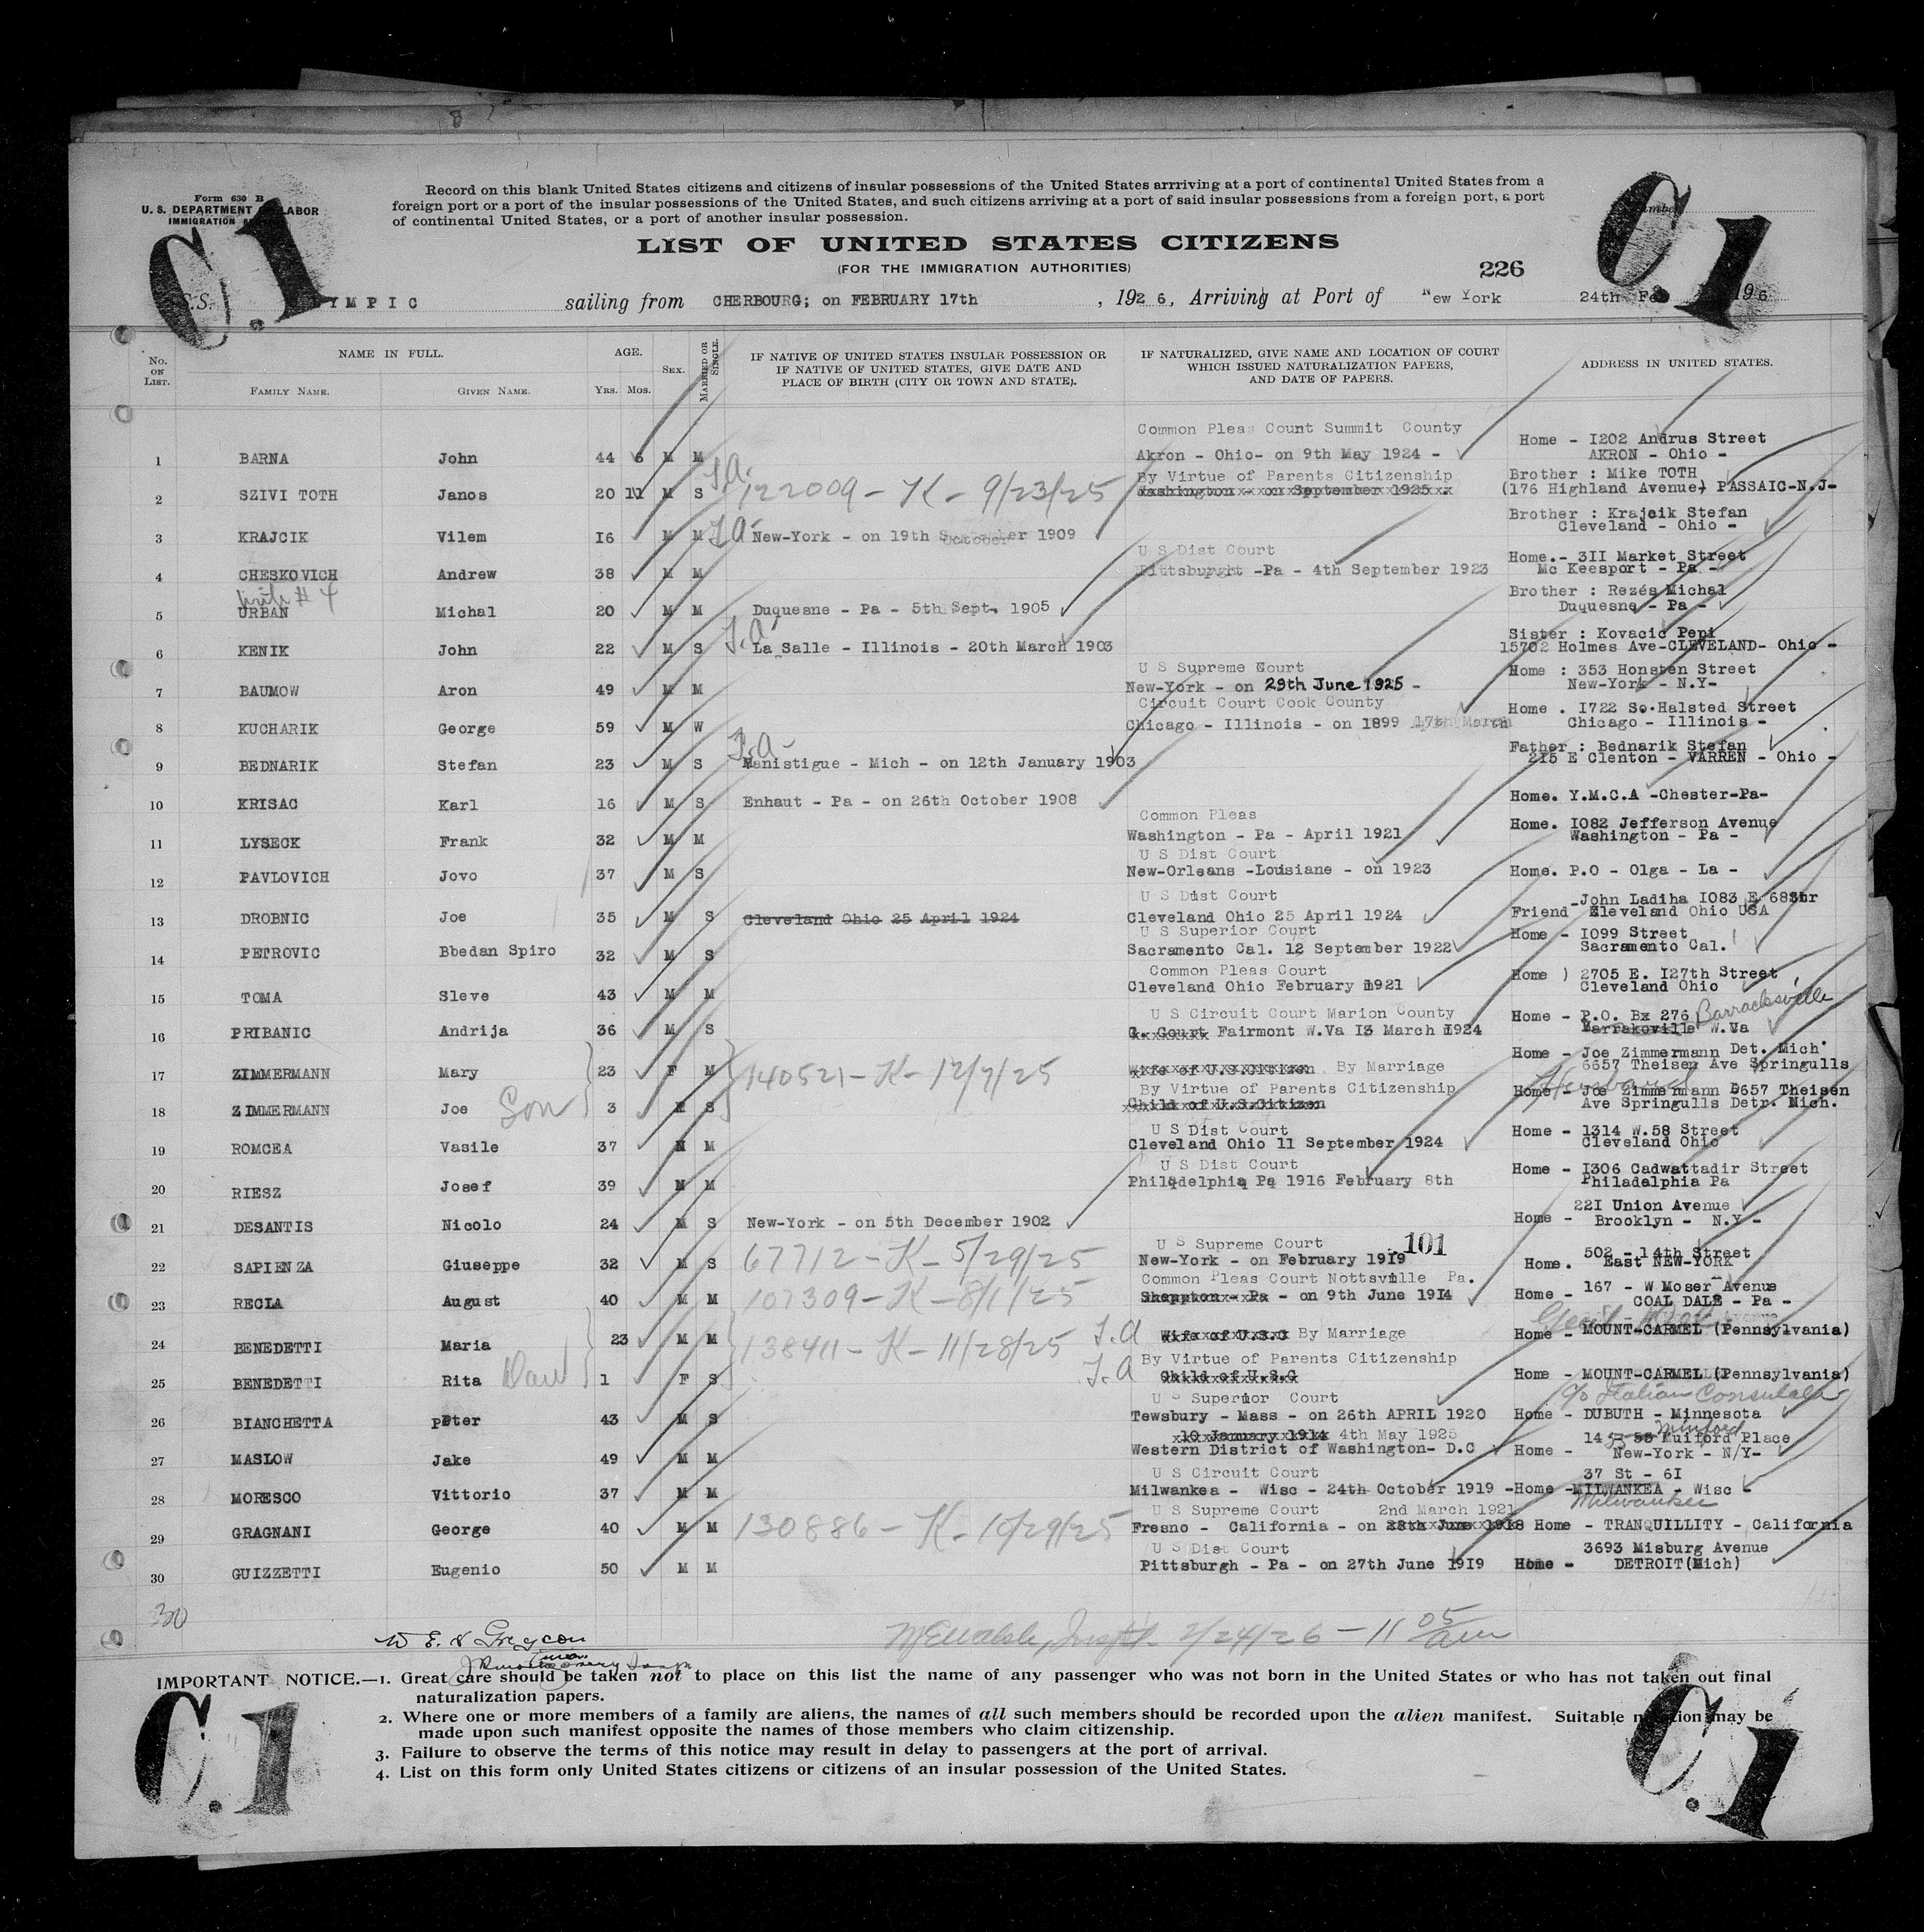 Form 630 B
U. S. DEPARTMENT OF LABOR
IMMIGRATION
C.1
C.1
Record on this blank United States citizens and citizens of insular possessions of the United States arrriving at a port of continental United States from a
foreign port or a port of the insular possessions of the United States, and such citizens arriving at a port of said insular possessions from a foreign port, a port
of continental United States, or a port of another insular possession.
LIST OF UNITED STATES CITIZENS
(FOR THE IMMIGRATION AUTHORITIES)
226
S.S. YMPIC sailing from CHERBOURG; on FEBRUARY 17th, 192 6, Arriving at Port of New York 24th Feb 196
No. ON LIST. NAME IN FULL. AGE. SEX. MARRIED OR SINGLE. IF NATIVE OF UNITED STATES INSULAR POSSESSION OR IF NATIVE OF UNITED STATES, GIVE DATE AND PLACE OF BIRTH (CITY OR TOWN AND STATE). IF NATURALIZED, GIVE NAME AND LOCATION OF COURT WHICH ISSUED NATURALIZATION PAPERS, AND DATE OF PAPERS. ADDRESS IN UNITED STATES.
FAMILY NAME. GIVEN NAME. YRS. MOS.
Common Pleas Count Summit County Home - I202 Andrus Street
1 BARNA John 44 6 M M Akron - Ohio- on 9th May 1924 - AKRON - Ohio -
By Virtue of Parents Citizenship Brother : Mike TOTH
2 SZIVI TOTH Janos 20 11 M S 122009 - K - 9/23/25 Washington - on September 1925 . (176 Highland Avenue) PASSAIC-N.J-
Brother : Krajcik Stefan
3 KRAJCIK Vilem I6 M M New-York - on 19th October 1909 Cleveland - Ohio -
U S Dist Court Home.- 3II Market Street
4 CHESKOVICH Andrew 38 M M Pittsburght -Pa - 4th September 1923 Mc Keesport - Pa -
Brother : Rezés Michal
5 URBAN Michal 20 M M Duquesne - Pa - 5th Sept. 1905 Duquesne - Pa -
Sister : Kovacic Pepi
6 KENIK John 22 M S La Salle - Illinois - 20th March 1903 15702 Holmes Ave-CLEVELAND- Ohio -
U S Supreme Court Home : 353 Honsten Street
7 BAUMOW Aron 49 M M New-York - on 29th June 1925 - New-York - N.Y-
Circuit Court Cook County Home . I722 So.Halsted Street
8 KUCHARIK George 59 M W Chicago - Illinois - on 1899 17th March Chicago - Illinois -
Father : Bednarik Stefan
9 BEDNARIK Stefan 23 M S Manistigue - Mich - on 12th January 1903 215 E Clenton - VARREN - Ohio -
10 KRISAC Karl 16 M S Enhaut - Pa - on 26th October 1908 Home. Y.M.C.A -Chester-Pa-
Common Pleas Home. I082 Jefferson Avenue
11 LYSECK Frank 32 M M Washington - Pa - April 1921 Washington - Pa -
U S Dist Court
12 PAVLOVICH Jovo 37 M S New-Orleans -Lousiane - on 1923 Home. P.O - Olga - La -
U S Dist Court -John Ladiha I083 E
13 DROBNIC Joe 35 M S Cleveland Ohio 25 April 1924 Cleveland Ohio 25 April 1924 Friend Cleveland Ohio USA
U S Superior Court Home - I099 Street
14 PETROVIC Bbedan Spiro 32 M S Sacramento Cal. 12 September 1922 Sacramento Cal.
Common Pleas Court Home ) 2705 E. I27th Street
15 TOMA Sleve 43 M M Cleveland Ohio February 1921 Cleveland Ohio
U S Circuit Court Marion County Home - P.O. Bx 276 Barracksville
16 PRIBANIC Andrija 36 M S Court Fairmont W.Va I3 March 1924 Barrakoville W.Va
Home - Joe Zimmermann Det. Mich.
17 ZIMMERMANN Mary 23 F M 140521 - K - 12/7/25 Wife of U.S.Citizen By Marriage 6657 Theisen Ave Springulls
By Virtue of Parents Citizenship Husband Home - Joe Zimmermann 6657 Theisen
18 ZIMMERMANN Joe Son 3 M S Child of U.S.Citizen Ave Springulls Detr. Mich.
U S Dist Court Home - 1314 W.58 Street
19 ROMCEA Vasile 37 M M Cleveland Ohio 11 September 1924 Cleveland Ohio
U S Dist Court Home - I306 Cadwattadir Street
20 RIESZ Josef 39 M M Philadelphia Pa 1916 February 8th Philadelphia Pa
22I Union Avenue
21 DESANTIS Nicolo 24 M S New-York - on 5th December 1902 Home - Brooklyn - N.Y -
U S Supreme Court .101 502 - 14th Street
22 SAPIENZA Giuseppe 32 M S 67712 - K - 5/29/25 New-York - on February 1919 Home. East NEW-YORK
Common Pleas Court Nottsville Pa. 167 - W Moser Avenue
23 RECLA August 40 M M 107309 - K - 8/1/25 Sheppton - Pa - on 9th June 1914 Home - COAL DALE - Pa -
24 BENEDETTI Maria 23 M M 138411 - K - 11/28/25 Wife of U.S.C By Marriage Home - MOUNT-CARMEL (Pennsylvania)
By Virtue of Parents Citizenship
25 BENEDETTI Rita Dau 1 F S Child of U.S.C Home - MOUNT-CARMEL (Pennsylvania)
U S Superior Court c/o Italian Consulate
26 BIANCHETTA peter 43 M S Tewsbury - Mass - on 26th APRIL 1920 Home - DUBUTH - Minnesota
10 January 1914 4th May 1925 14 Place
27 MASLOW Jake 49 M M Western District of Washington- D.C Home - New-York - N/Y-
U S Circuit Court 37 St - 6I
28 MORESCO Vittorio 37 M M Milwankea - Wisc - 24th October 1919 -Home -MILWANKEA - Wisc - Milwaukee
U S Supreme Court 2nd March 1921
29 GRAGNANI George 40 M M 130886 - K - 10/29/25 Fresno - California - on 28th June 1918 Home - TRANQUILLITY - California
U S Dist Court 3693 Misburg Avenue
30 GUIZZETTI Eugenio 50 M M Pittsburgh - Pa - on 27th June 1919 Home - DETROIT(Mich)
30
2/24/26 - 11 05 am
IMPORTANT NOTICE.—1. Great care should be taken not to place on this list the name of any passenger who was not born in the United States or who has not taken out final
naturalization papers.
2. Where one or more members of a family are aliens, the names of all such members should be recorded upon the alien manifest. Suitable notation may be
made upon such manifest opposite the names of those members who claim citizenship.
3. Failure to observe the terms of this notice may result in delay to passengers at the port of arrival.
4. List on this form only United States citizens or citizens of an insular possession of the United States.
C.1
C.1